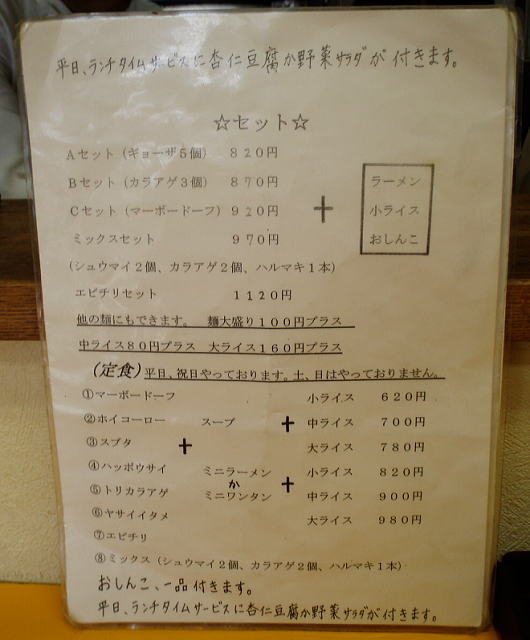 平日、ランチタイムサービスに杏仁豆腐か野菜サラダが付きます。
☆セット☆
Aセット（ギョーザ5個） 820円
Bセット（カラアゲ3個） 870円
Cセット（マーボードーフ） 920円
ミックスセット 970円
＋
ラーメン
小ライス
おしんこ
（シュウマイ2個、カラアゲ2個、ハルマキ1本）
エビチリセット 1120円
他の麺にもできます。 麺大盛り100円プラス
中ライス80円プラス 大ライス160円プラス
（定食）平日、祝日やっております。土、日はやっておりません。
①マーボードーフ 小ライス 620円
②ホイコーロー スープ ＋ 中ライス 700円
③スブタ ＋ 大ライス 780円
④ハッポウサイ ミニラーメン 小ライス 820円
か ＋
⑤トリカラアゲ ミニワンタン 中ライス 900円
⑥ヤサイイタメ 大ライス 980円
⑦エビチリ
⑧ミックス（シュウマイ2個、カラアゲ2個、ハルマキ1本）
おしんこ、一品付きます。
平日、ランチタイムサービスに杏仁豆腐か野菜サラダが付きます。